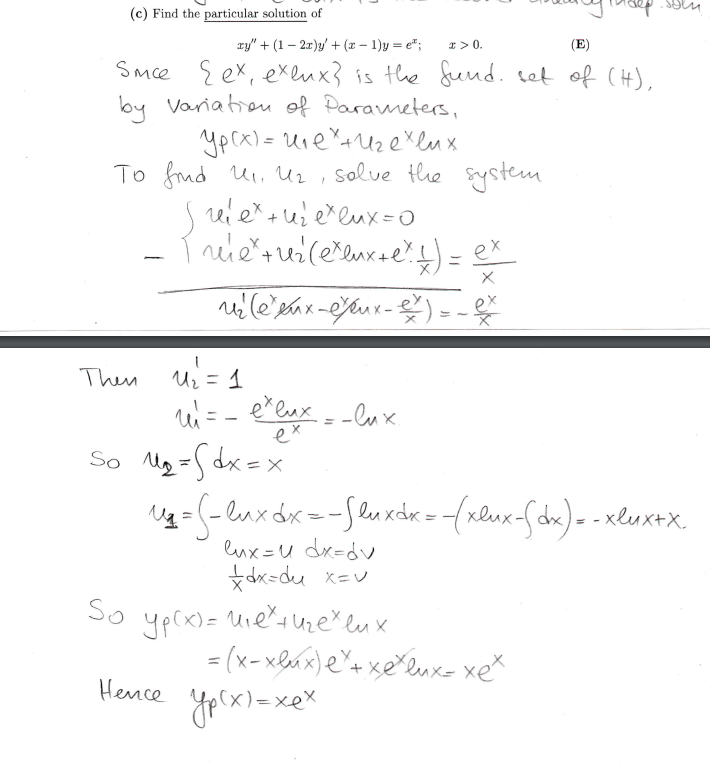 linearly indep. soln
(c) Find the particular solution of
xy'' + (1 − 2x)y' + (x − 1)y = e^x;   x > 0.   (E)
Since {e^x, e^x lnx} is the fund. set of (H),
by Variation of Parameters,
yp(x) = u1e^x + u2e^x lnx
To find u1, u2, solve the system
u1'e^x + u2'e^x lnx = 0
− u1'e^x + u2'(e^x lnx + e^x · 1/x) = e^x/x
u2'(e^x lnx − e^x lnx − e^x/x) = − e^x/x
Then u2' = 1
u1' = − e^x lnx/e^x = −lnx
So u2 = ∫dx = x
u1 = ∫−lnx dx = −∫lnx dx = −(xlnx − ∫dx) = −xlnx + x.
lnx = u   dx = dv
1/x dx = du   x = v
So yp(x) = u1e^x + u2e^x lnx
= (x − xlnx)e^x + xe^x lnx = xe^x
Hence yp(x) = xe^x